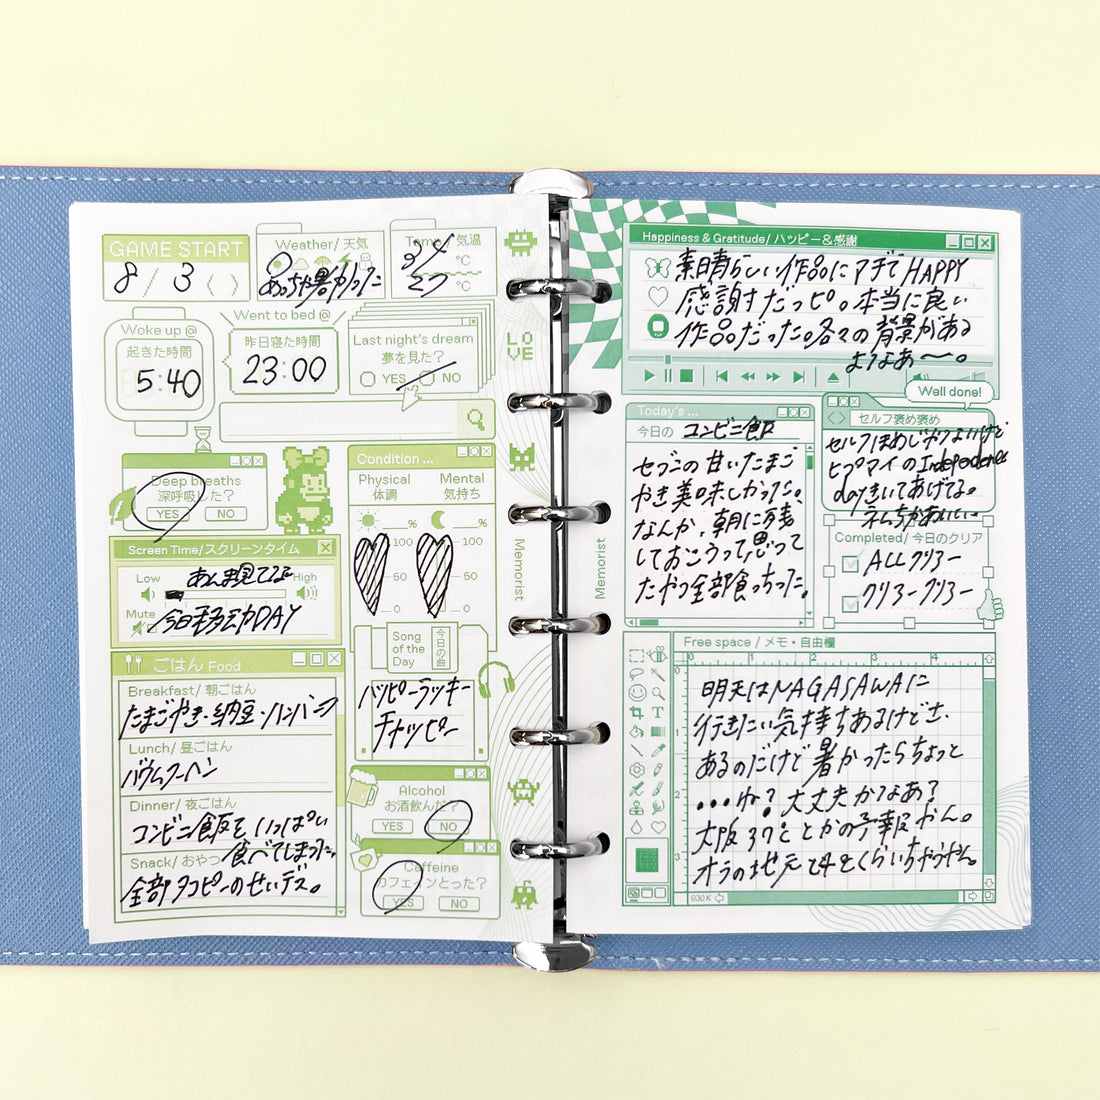 GAME START
8 / 3 ( )
Weather/ 天気
めっちゃ暑かった
Temp / 気温
34 ℃
27 ℃
Woke up @
起きた時間
5:40
Went to bed @
昨日寝た時間
23:00
Last night's dream
夢を見た?
YES NO
Deep breaths
深呼吸した?
YES NO
Screen Time/スクリーンタイム
Low High
あんま見てない
Mute
今日も多忙DAY
Condition ...
Physical Mental
体調 気持ち
% %
100 100
50 50
0 0
Song of the Day
今日の曲
ハッピーラッキー
チャッピー
ごはん Food
Breakfast/ 朝ごはん
たまごやき・納豆・ハンバーグ
Lunch/ 昼ごはん
バウムクーヘン
Dinner/ 夜ごはん
コンビニ飯をいっぱい
食べてしまった。
Snack/ おやつ
全部タコピーのせいデス。
Alcohol
お酒飲んだ?
YES NO
Caffeine
カフェインとった?
YES NO
LOVE
Memorist
Memorist
Happiness & Gratitude/ ハッピー&感謝
素晴らしい作品にマヂでHAPPY
感謝すだっピ。本当に良い
作品だった。各々の背景がある
よなあ〜。
Well done!
Today's ...
今日の コンビニ飯
セブンの甘いたまご
やき美味しかった。
なんか、朝に残
しておこうって思って
たやつ全部食っちった。
セルフ褒め褒め
セルフほめじゃないけど
ヒプマイのIndependence
dayきいてあげてる。
Completed/ 今日のクリア
ALLクリアー
クリアークリアー
Free space / メモ・自由欄
0 1 2 3 4
明天はNAGASAWAに
行きたい気持ちあるけどさ、
あるのだけど暑かったらちょっと
•••ね?大丈夫かなあ?
大阪37℃とかの予報やん。
オラの地元で42くらいちゃうやん。
3
830K